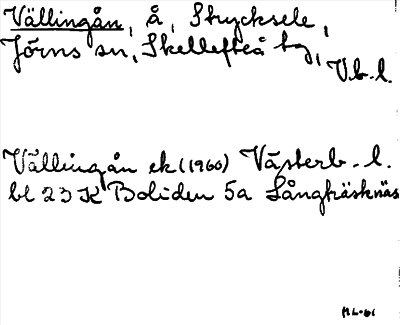 Vällingån, å, Strycksele,
Jörns sn, Skellefteå tg,
Vb. l.
Vällingån ek (1960) Västerb. l.
bl 23 K Boliden 5a Långträsknäs